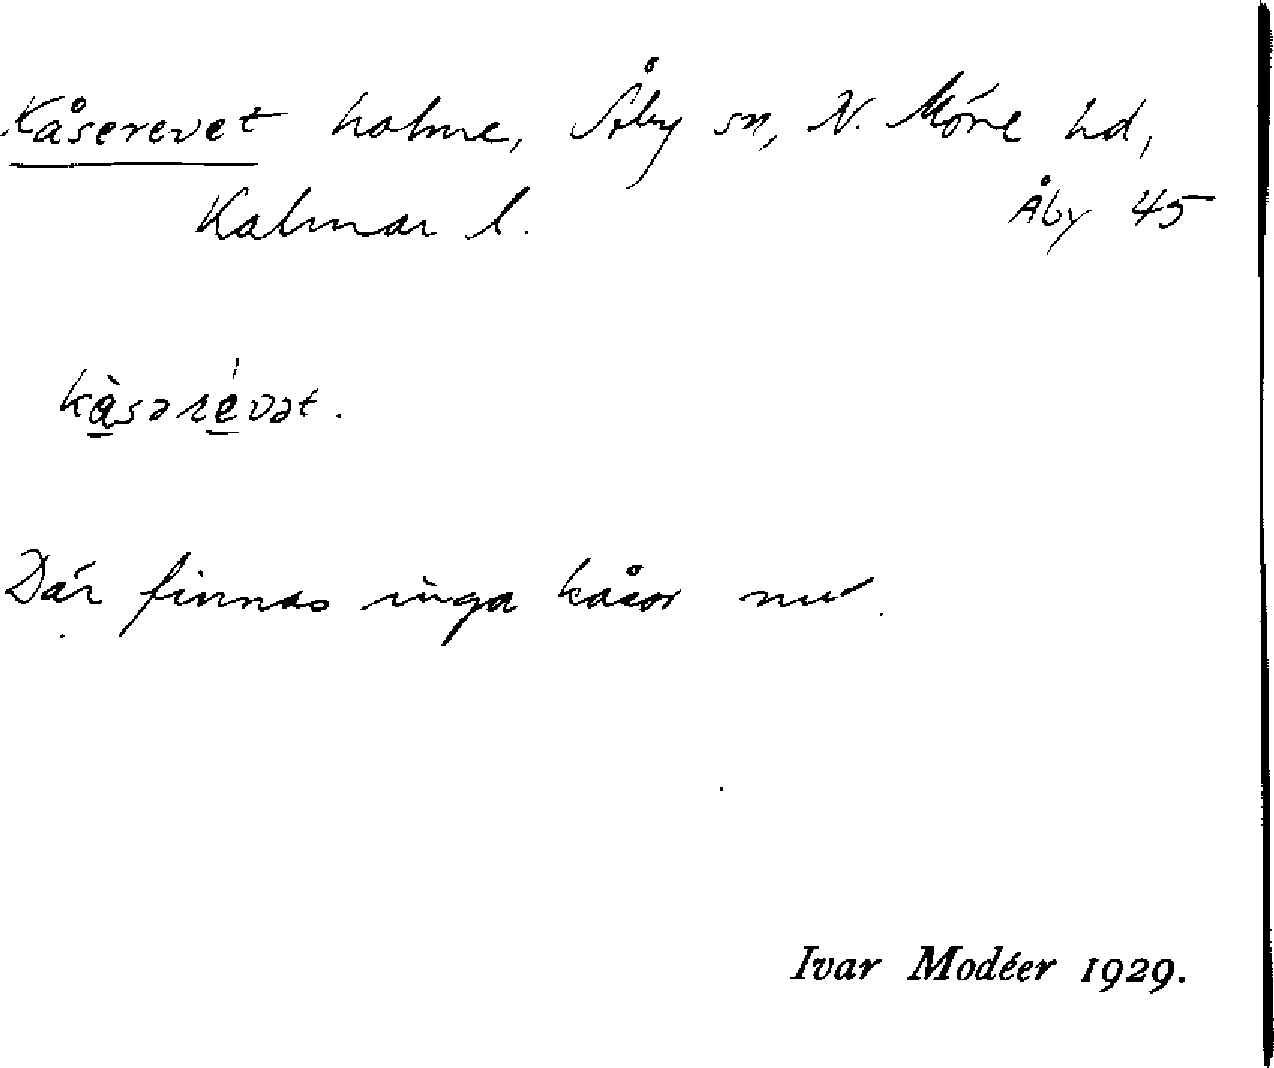 Kåserevet holme, Åby sn, N. Möre hd,
Kalmar l. Åby 45
kà̱səré̱vət.
Där finnas inga kåsor nu.
Ivar Modéer 1929.